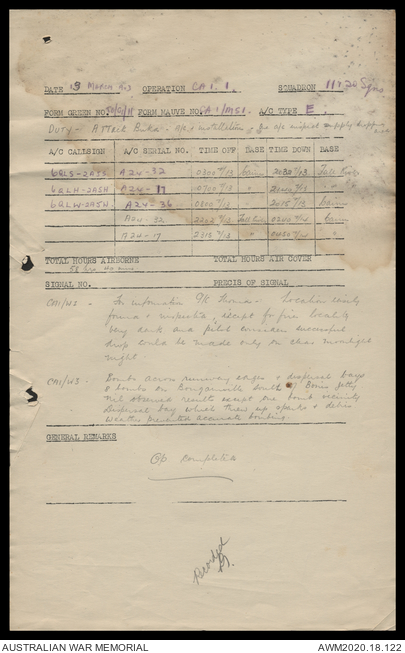 DATE 13 March 43 OPERATION CA 1. 1. SQUADRON 11 & 20 Sqns
FORM GREEN NO. FORM MAUVE NO. CA 1/M51. A/C TYPE E.
DUTY - Attack Buka - installations shipping
A/C CALLSIGN A/C SERIAL NO. TIME OFF BASE TIME DOWN BASE
6QLS-2A5S A24-32 0300/13 Cairns 2030/13
6QLH-2A5H A24-17 0700/13 "
6QLW-2A5W A24-36 0300/13 " 2015/13 Cairns
A24-32 2203/13 0240/14 Cairns
A24-17 2315/13 0430/14 "
TOTAL HOURS AIRBORNE TOTAL HOURS AIR COVER
58 hrs
SIGNAL NO. PRECIS OF SIGNAL
CA1/W2 - For information Location
found & impossible, except for fire locality
very dark and pilot considers successful
drop could be made only on clear moonlight
night
CA1/W3 - Bombs across runway edges & dispersal bays
8 bombs on Bougainville south of Bonis jetty
Not observed results except one bomb vicinity
dispersal bay which threw up sparks & debris
Weather prevented accurate bombing.
GENERAL REMARKS
Op completed
AUSTRALIAN WAR MEMORIAL AWM2020.18.122